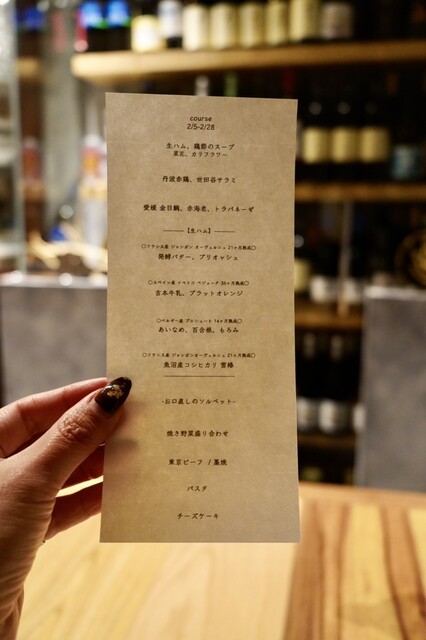 course
2/5-2/28
生ハム、鶏節のスープ
菜花、カリフラワー
丹波赤鶏、世田谷サラミ
愛媛 金目鯛、赤海老、トラパネーゼ
【生ハム】
○フランス産 ジャンボン オーヴェルニュ 21ヶ月熟成○
発酵バター、ブリオッシュ
○スペイン産 イベリコ ベジョータ 36ヶ月熟成○
吉本牛乳、ブラッドオレンジ
○ベルギー産 プロシュート 14ヶ月熟成○
あいなめ、百合根、もろみ
○フランス産 ジャンボンオーヴェルニュ 21ヶ月熟成○
魚沼産コシヒカリ 雪椿
-お口直しのソルベット-
焼き野菜盛り合わせ
東京ビーフ /藁焼
パスタ
チーズケーキ